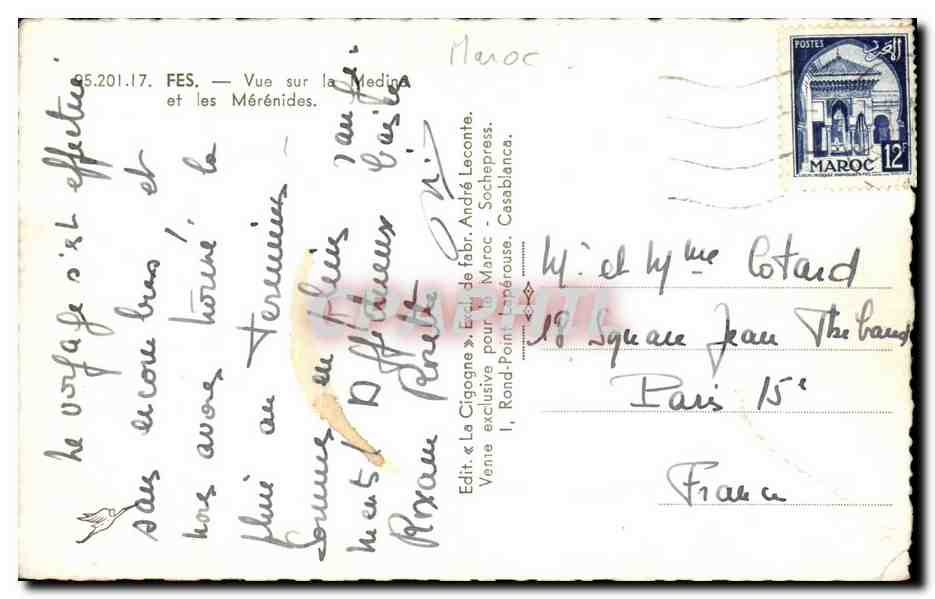 Maroc
95.201.17. FES. — Vue sur la Medina
et les Mérénides.
POSTES
المغرب
MAROC 12F
Le voyage s'est effectué
sans encombres et
nous avons trouvé la
pluie au terminus –
Sommes en plein
ments. Affectueux baisers
Roxane Rosette
Edit. « La Cigogne ». Excl. de fabr. André Leconte.
Vente exclusive pour le Maroc - Sochepress.
1, Rond-Point Lapérouse. Casablanca.
Mr et Mme Cotard
18 Square Jean Thebaud
Paris 15e
France